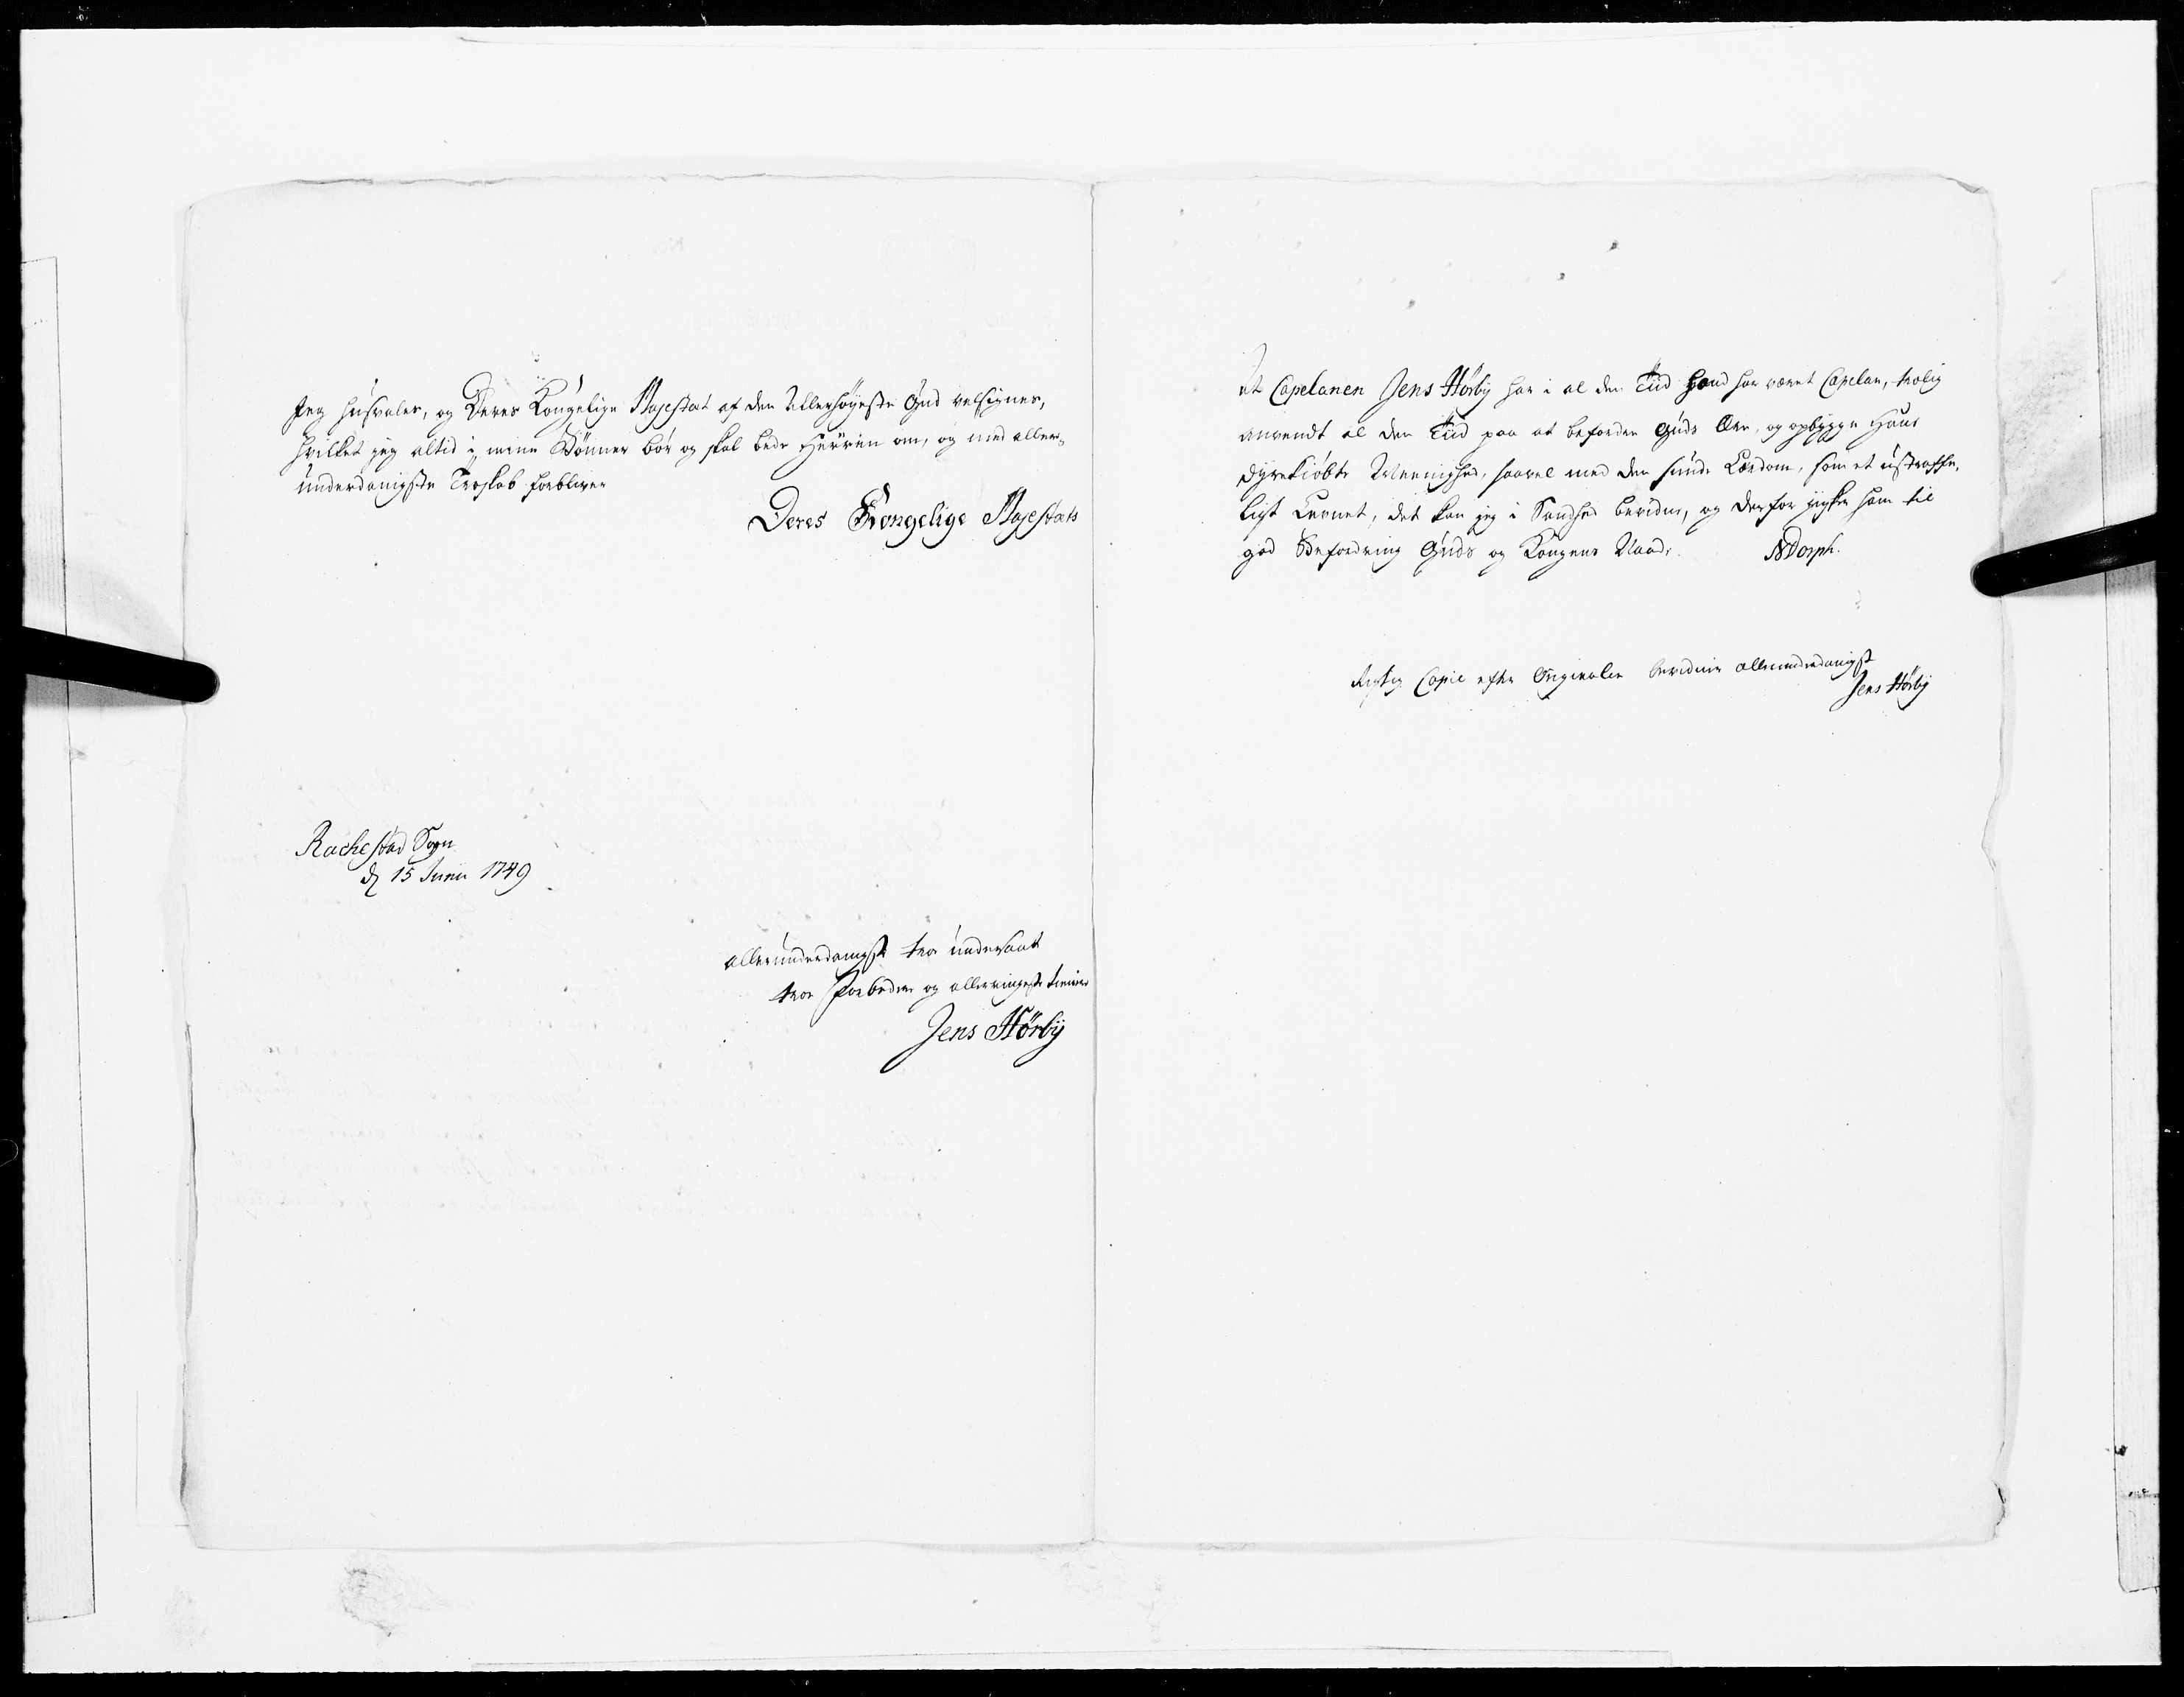 Jeg husvales, og Deres Kongelige Majestæt af den Allerhöyeste Gud velsignes,
hvilket jeg altid i mine Bönner bör og skal bede Herren om, og med aller-
underdanigste Troskab forbliver
Deres Kongelige Majestæts
Rachestad Sogn
d 15 Junii 1749
allerunderdanigst troe undersaat
troe Forbeder og allerringeste tiener
Jens Hörbÿ
At Capelanen Jens Hörbÿ har i al den Tiid hand har været Capelan, trolig
anvendt al den Tiid paa at befordre Guds Ære, og opbygge Hans
dyrekiöbte Meenighed, saavel med den sunde Lærdom, som et ustraffe,
ligt Levnet, det kan jeg i Sandhed bevidne, og derfor ynsker ham til
god Befordring Guds og Kongens Naade. NDorph.
Rigtig Copie efter Originalen bevidner allerunderdanigst
Jens Hörbÿ